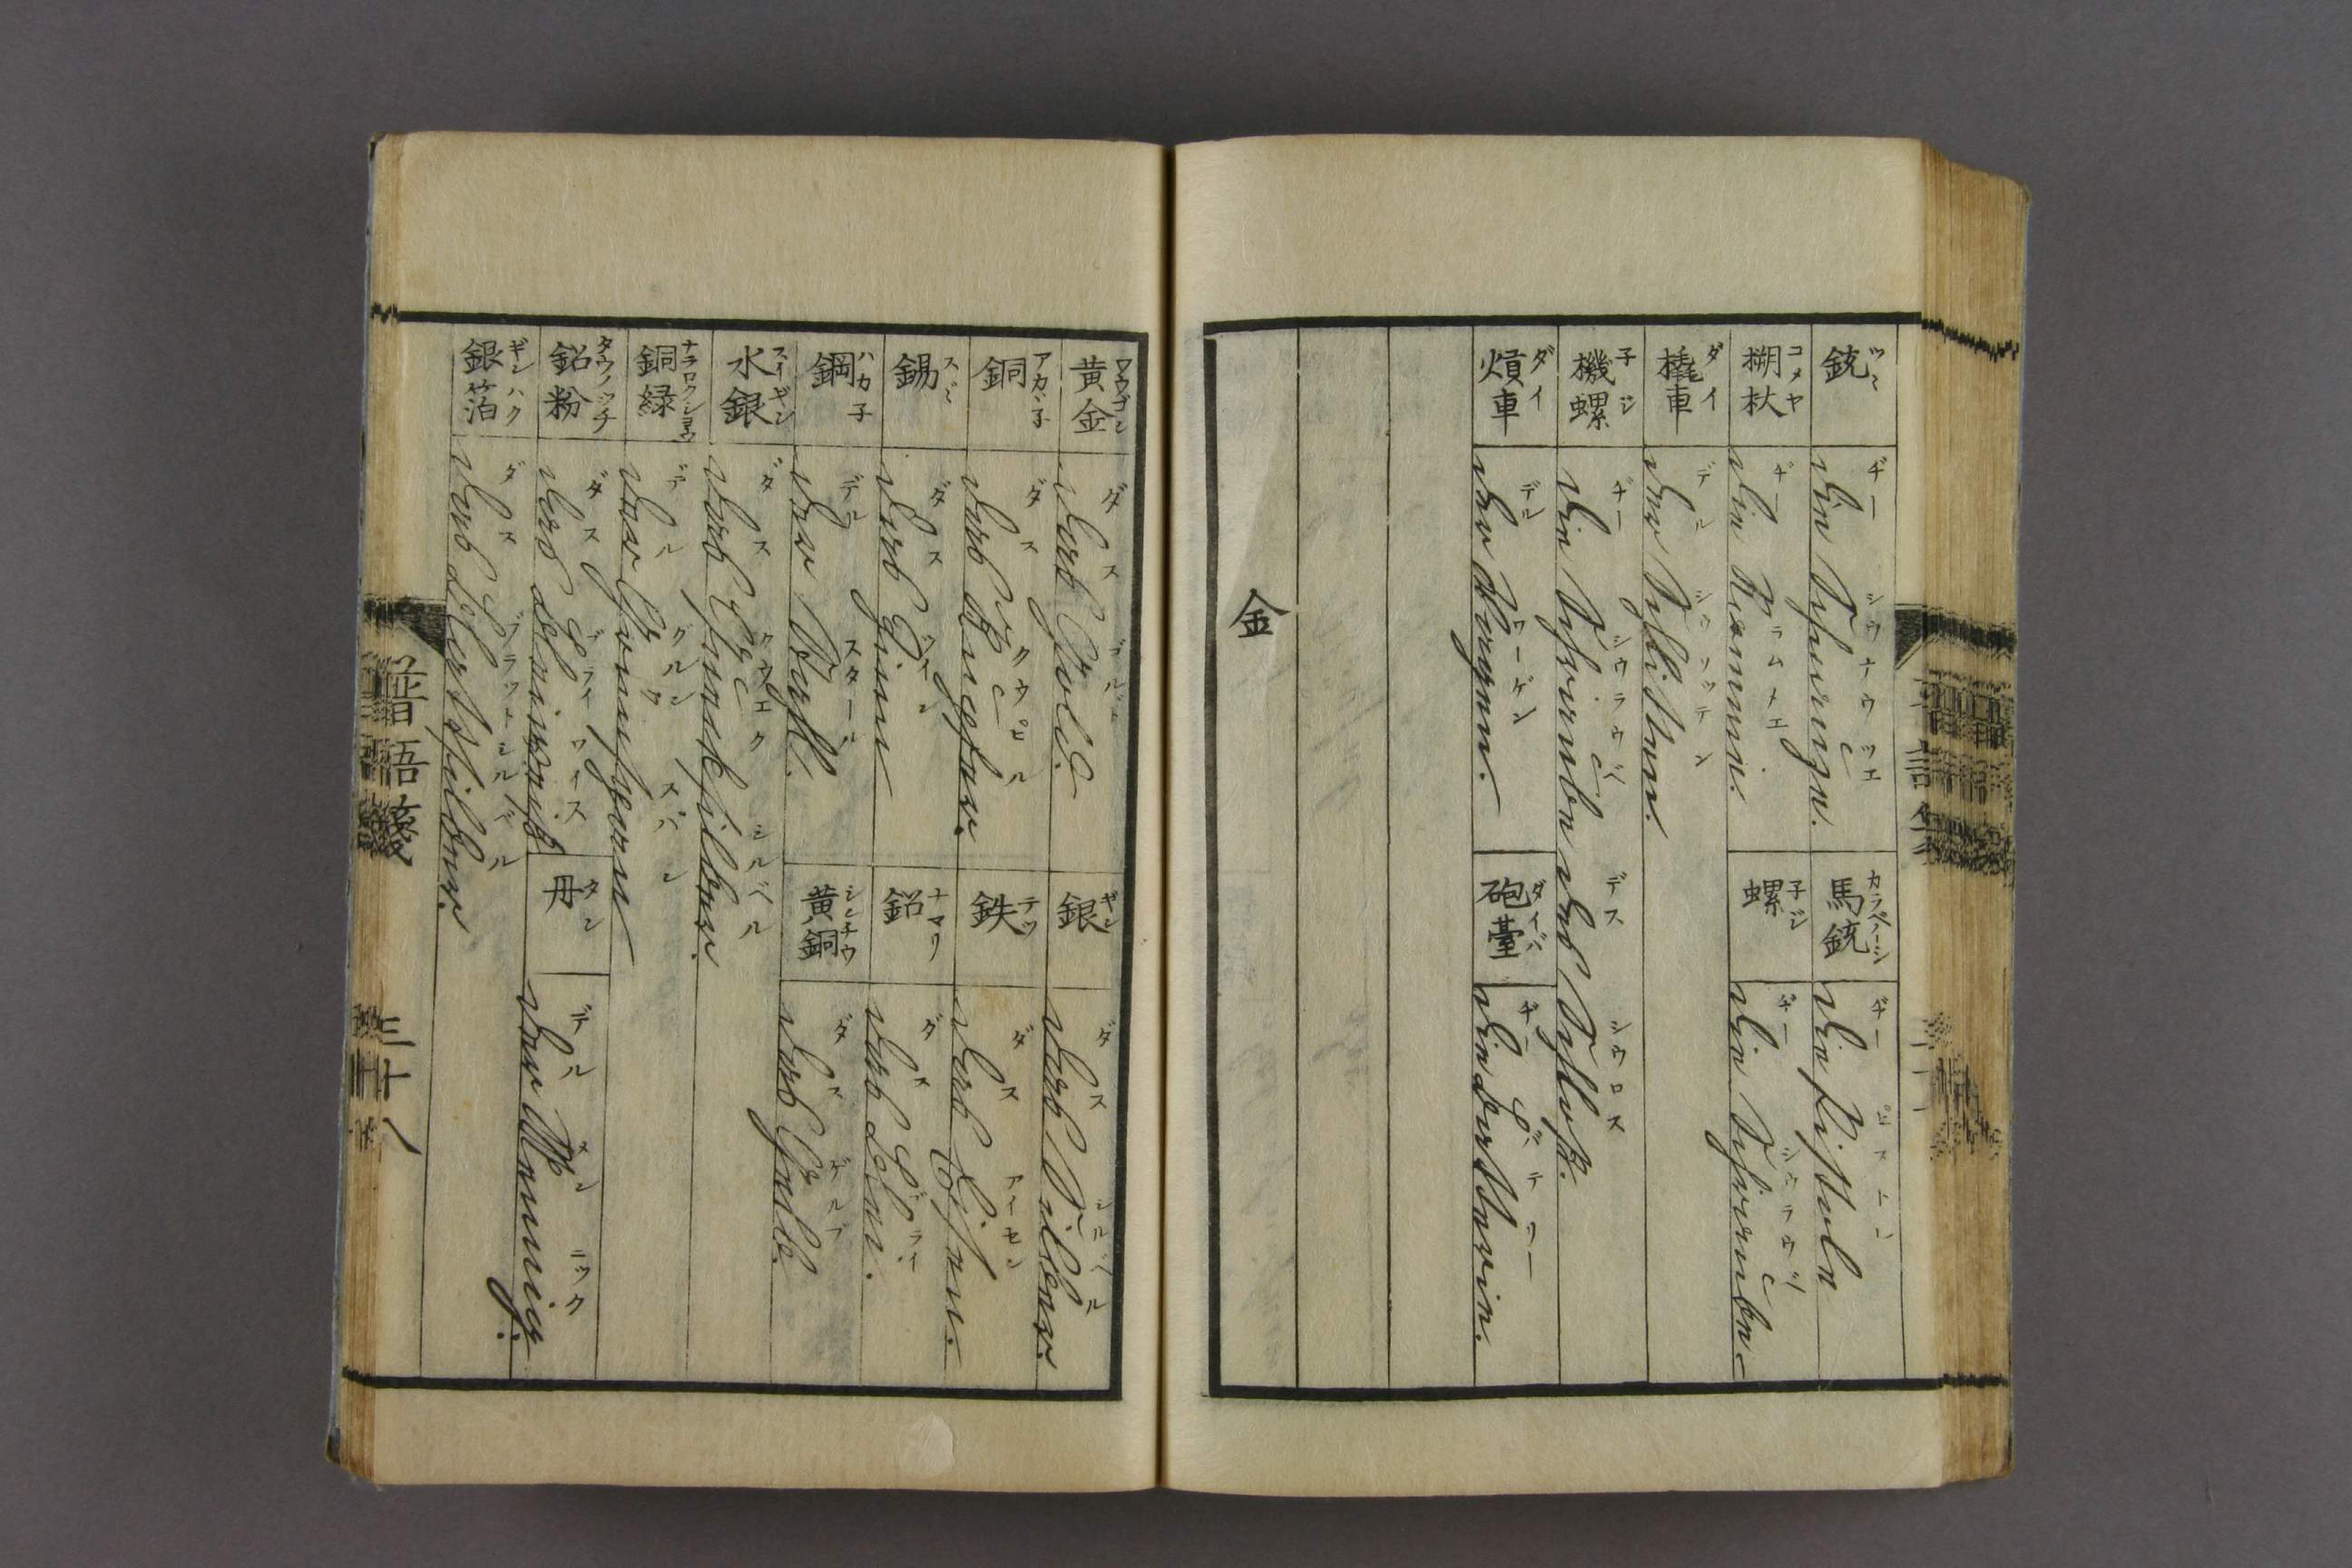 銃 ツヽ
ヂー
馬銃
ヂー
die Pistole
槊杖 コメヤ
ヂー ラムメエ
螺 子ジ
ヂー
橇車 ダイ
デル シウリッテン
der Schlitten.
機螺 子ジ
ヂー シウラウベ デス シウロス
die Schraube des Schloß.
熕車 ダイ
デル ワーゲン
der Wagen.
砲臺 ダイバ
ヂー バテリー
die Batterie.
金
黄金 ワウゴン
ダス ゴルド
das Gold.
銀 ギン
ダス シルベル
das Silber.
銅 アカヾ子
ダス クウペル
das Kupfer.
鉄 テツ
ダス アイセン
das Eisen.
錫 スヾ
ダス
das Zinn
鉛 ナマリ
ダス ブライ
das Blei.
鋼 ハカ子
デル スタール
der Stahl.
黄銅 シンチウ
ダス ゲルブ
das Gelb.
水銀 スイギン
ダス クウエクシルベル
das Quecksilber.
銅緑
デル グルンスパン
der Grünspan
鉛粉 タウノツチ
ダス ブライワイス
das Bleiweiß
丹 タン
デル メンニック
der Mennig.
銀箔 ギンハク
ダス ブラットシルベル
das Blattsilber.
普語箋
三十八